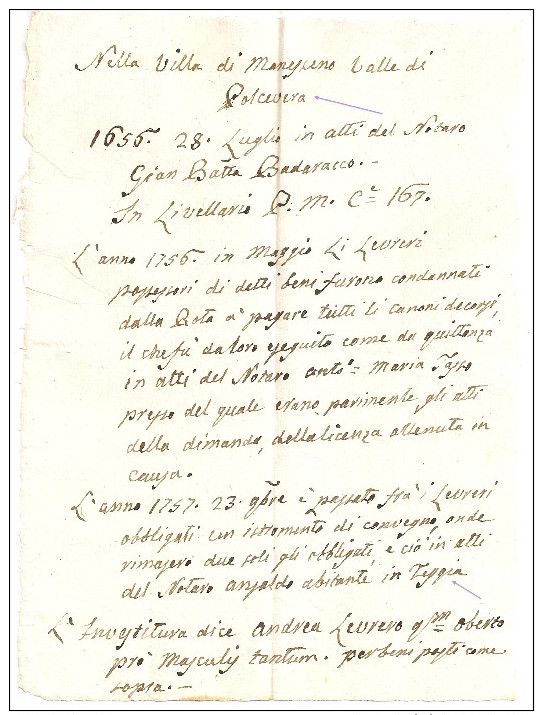 Nella Villa di Manesseno Valle di
Polcevera
1656. 28. Luglio in atti del Notaro
Gian Batta Badaracco. -
In Livellario P. M. Ce 167.
L'anno 1756. in Maggio Li Levreri
possessori di detti beni furono condannati
dalla Rota à pagare tutti li canoni decorsi,
il che fù da loro eseguito come da quittanza
in atti del Notaro Anto. Maria Tasso
presso del quale erano parimente gli atti
della dimanda, della licenza ottenuta in
causa.
L'anno 1757. 23. 9bre è passato frà i Levreri
obbligati un istromento di convegno, onde
rimasero due soli gli obbligati, e ciò in atti
del Notaro Ansaldo abitante in Teggia
L'Investitura dice Andrea Levrero qm Oberto
prò Masculis tantum. per beni posti come
sopra. -